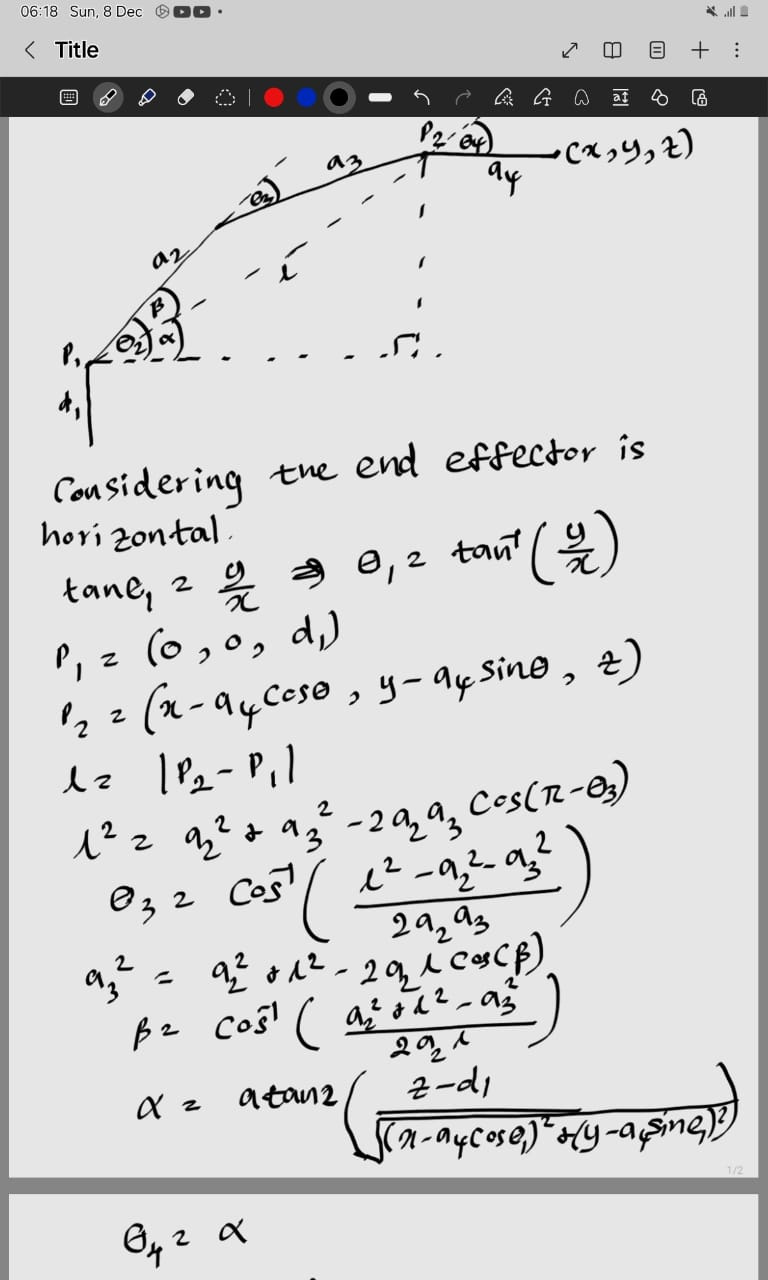 06:18 Sun, 8 Dec
Title
P₂ θ₄ (x,y,z)
a₃ a₄
θ₃
a₂
l
β
P₁ θ₂ α
d₁
Considering the end effector is
horizontal.
tanθ₁ = y/x ⇒ θ₁ = tan⁻¹(y/x)
P₁ = (0, 0, d₁)
P₂ = (x-a₄cosθ, y-a₄sinθ, z)
l = |P₂-P₁|
l² = a₂² + a₃² - 2a₂a₃ Cos(π-θ₃)
θ₃ = Cos⁻¹((l²-a₂²-a₃²)/(2a₂a₃))
a₃² = a₂² + l² - 2a₂l Cos(β)
β = Cos⁻¹((a₂²+l²-a₃²)/(2a₂l))
α = atan2((z-d₁)/√((x-a₄cosθ₁)²+(y-a₄sinθ₁)²))
1/2
θ₄ = α